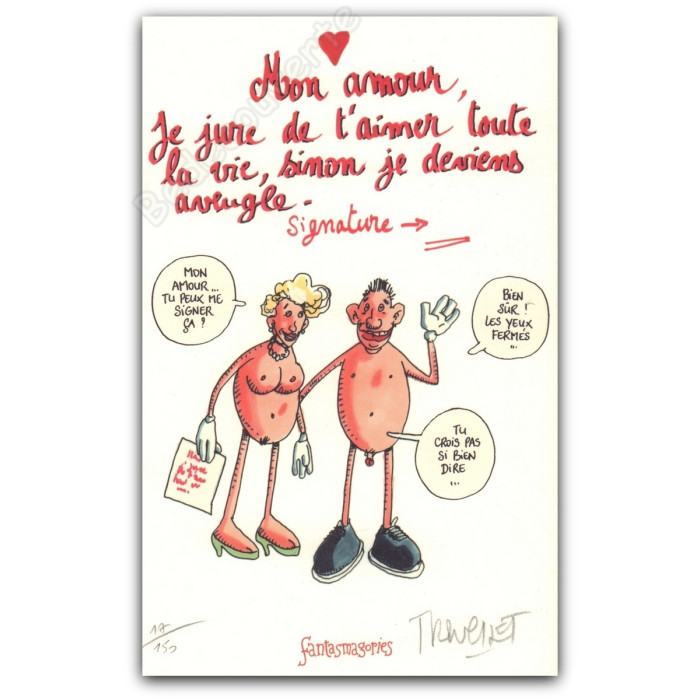 Mon amour,
Je jure de t'aimer toute
la vie, sinon je deviens
aveugle.
Signature →
MON
AMOUR...
TU PEUX ME
SIGNER
ÇA ?
BIEN
SÛR !
LES YEUX
FERMÉS
...
TU
CROIS PAS
SI BIEN
DIRE
...
17/150
fantasmagories